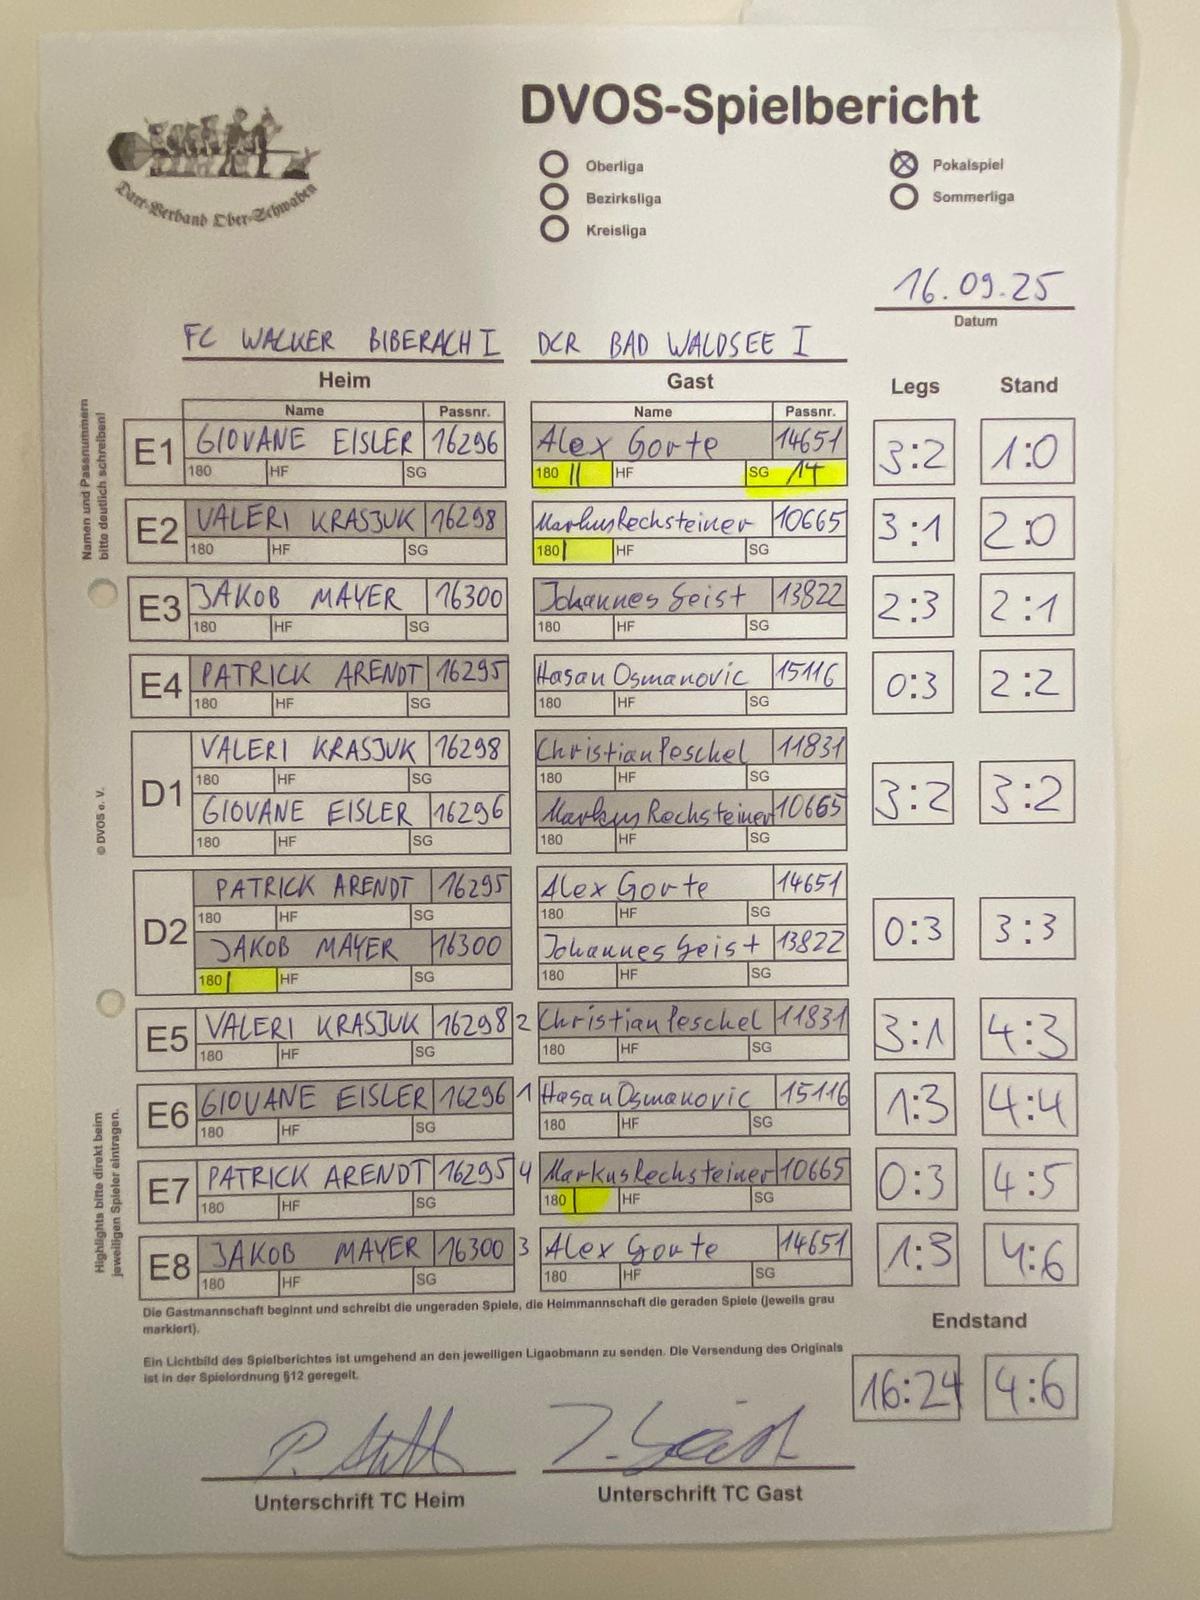 DVOS-Spielbericht
Dart-Verband Ober-Schwaben
Oberliga
Bezirksliga
Kreisliga
Pokalspiel
Sommerliga
16.09.25
Datum
FC WACKER BIBERACH I DCR BAD WALDSEE I
Heim Gast Legs Stand
Name Passnr. Name Passnr.
Namen und Passnummern
bitte deutlich schreiben!
E1 GIOVANE EISLER 16296 Alex Gorte 14651 3:2 1:0
180 HF SG 180 || HF SG 14
E2 VALERI KRASJUK 16298 Markus Rechsteiner 10665 3:1 2:0
180 HF SG 180 | HF SG
E3 JAKOB MAYER 16300 Johannes Geist 13822 2:3 2:1
180 HF SG 180 HF SG
E4 PATRICK ARENDT 16295 Hasan Osmanovic 15116 0:3 2:2
180 HF SG 180 HF SG
D1 VALERI KRASJUK 16298 Christian Peschel 11831 3:2 3:2
180 HF SG 180 HF SG
GIOVANE EISLER 16296 Markus Rechsteiner 10665
180 HF SG 180 HF SG
© DVOS e. V.
D2 PATRICK ARENDT 16295 Alex Gorte 14651 0:3 3:3
180 HF SG 180 HF SG
JAKOB MAYER 16300 Johannes Geist 13822
180 | HF SG 180 HF SG
E5 VALERI KRASJUK 16298 2 Christian Peschel 11831 3:1 4:3
180 HF SG 180 HF SG
E6 GIOVANE EISLER 16296 1 Hasan Osmanovic 15116 1:3 4:4
180 HF SG 180 HF SG
E7 PATRICK ARENDT 16295 4 Markus Rechsteiner 10665 0:3 4:5
180 HF SG 180 | HF SG
E8 JAKOB MAYER 16300 3 Alex Gorte 14651 1:3 4:6
180 HF SG 180 HF SG
Highlights bitte direkt beim
jeweiligen Spieler eintragen.
Die Gastmannschaft beginnt und schreibt die ungeraden Spiele, die Heimmannschaft die geraden Spiele (jeweils grau
markiert).
Endstand
Ein Lichtbild des Spielberichtes ist umgehend an den jeweiligen Ligaobmann zu senden. Die Versendung des Originals
ist in der Spielordnung §12 geregelt.
16:24 4:6
J. Geist
Unterschrift TC Heim Unterschrift TC Gast